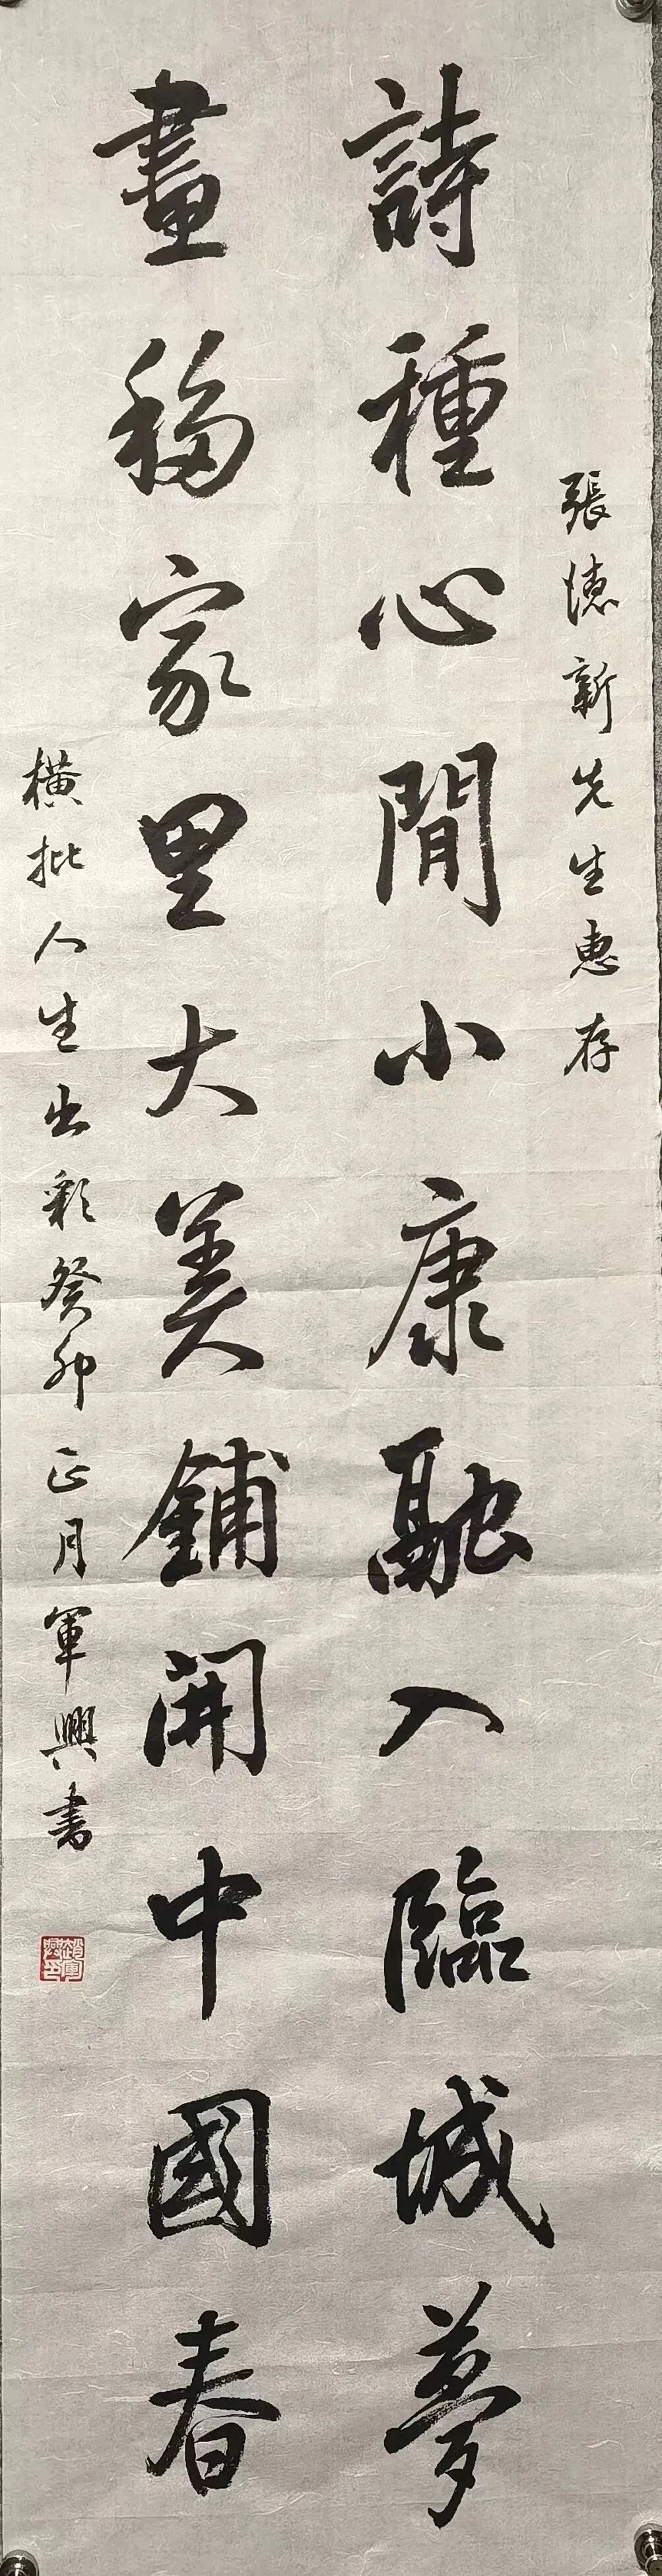 張德新先生惠存
詩種心間小康融入臨城夢
畫移家里大美鋪開中國春
橫批人生出彩癸卯正月軍興书